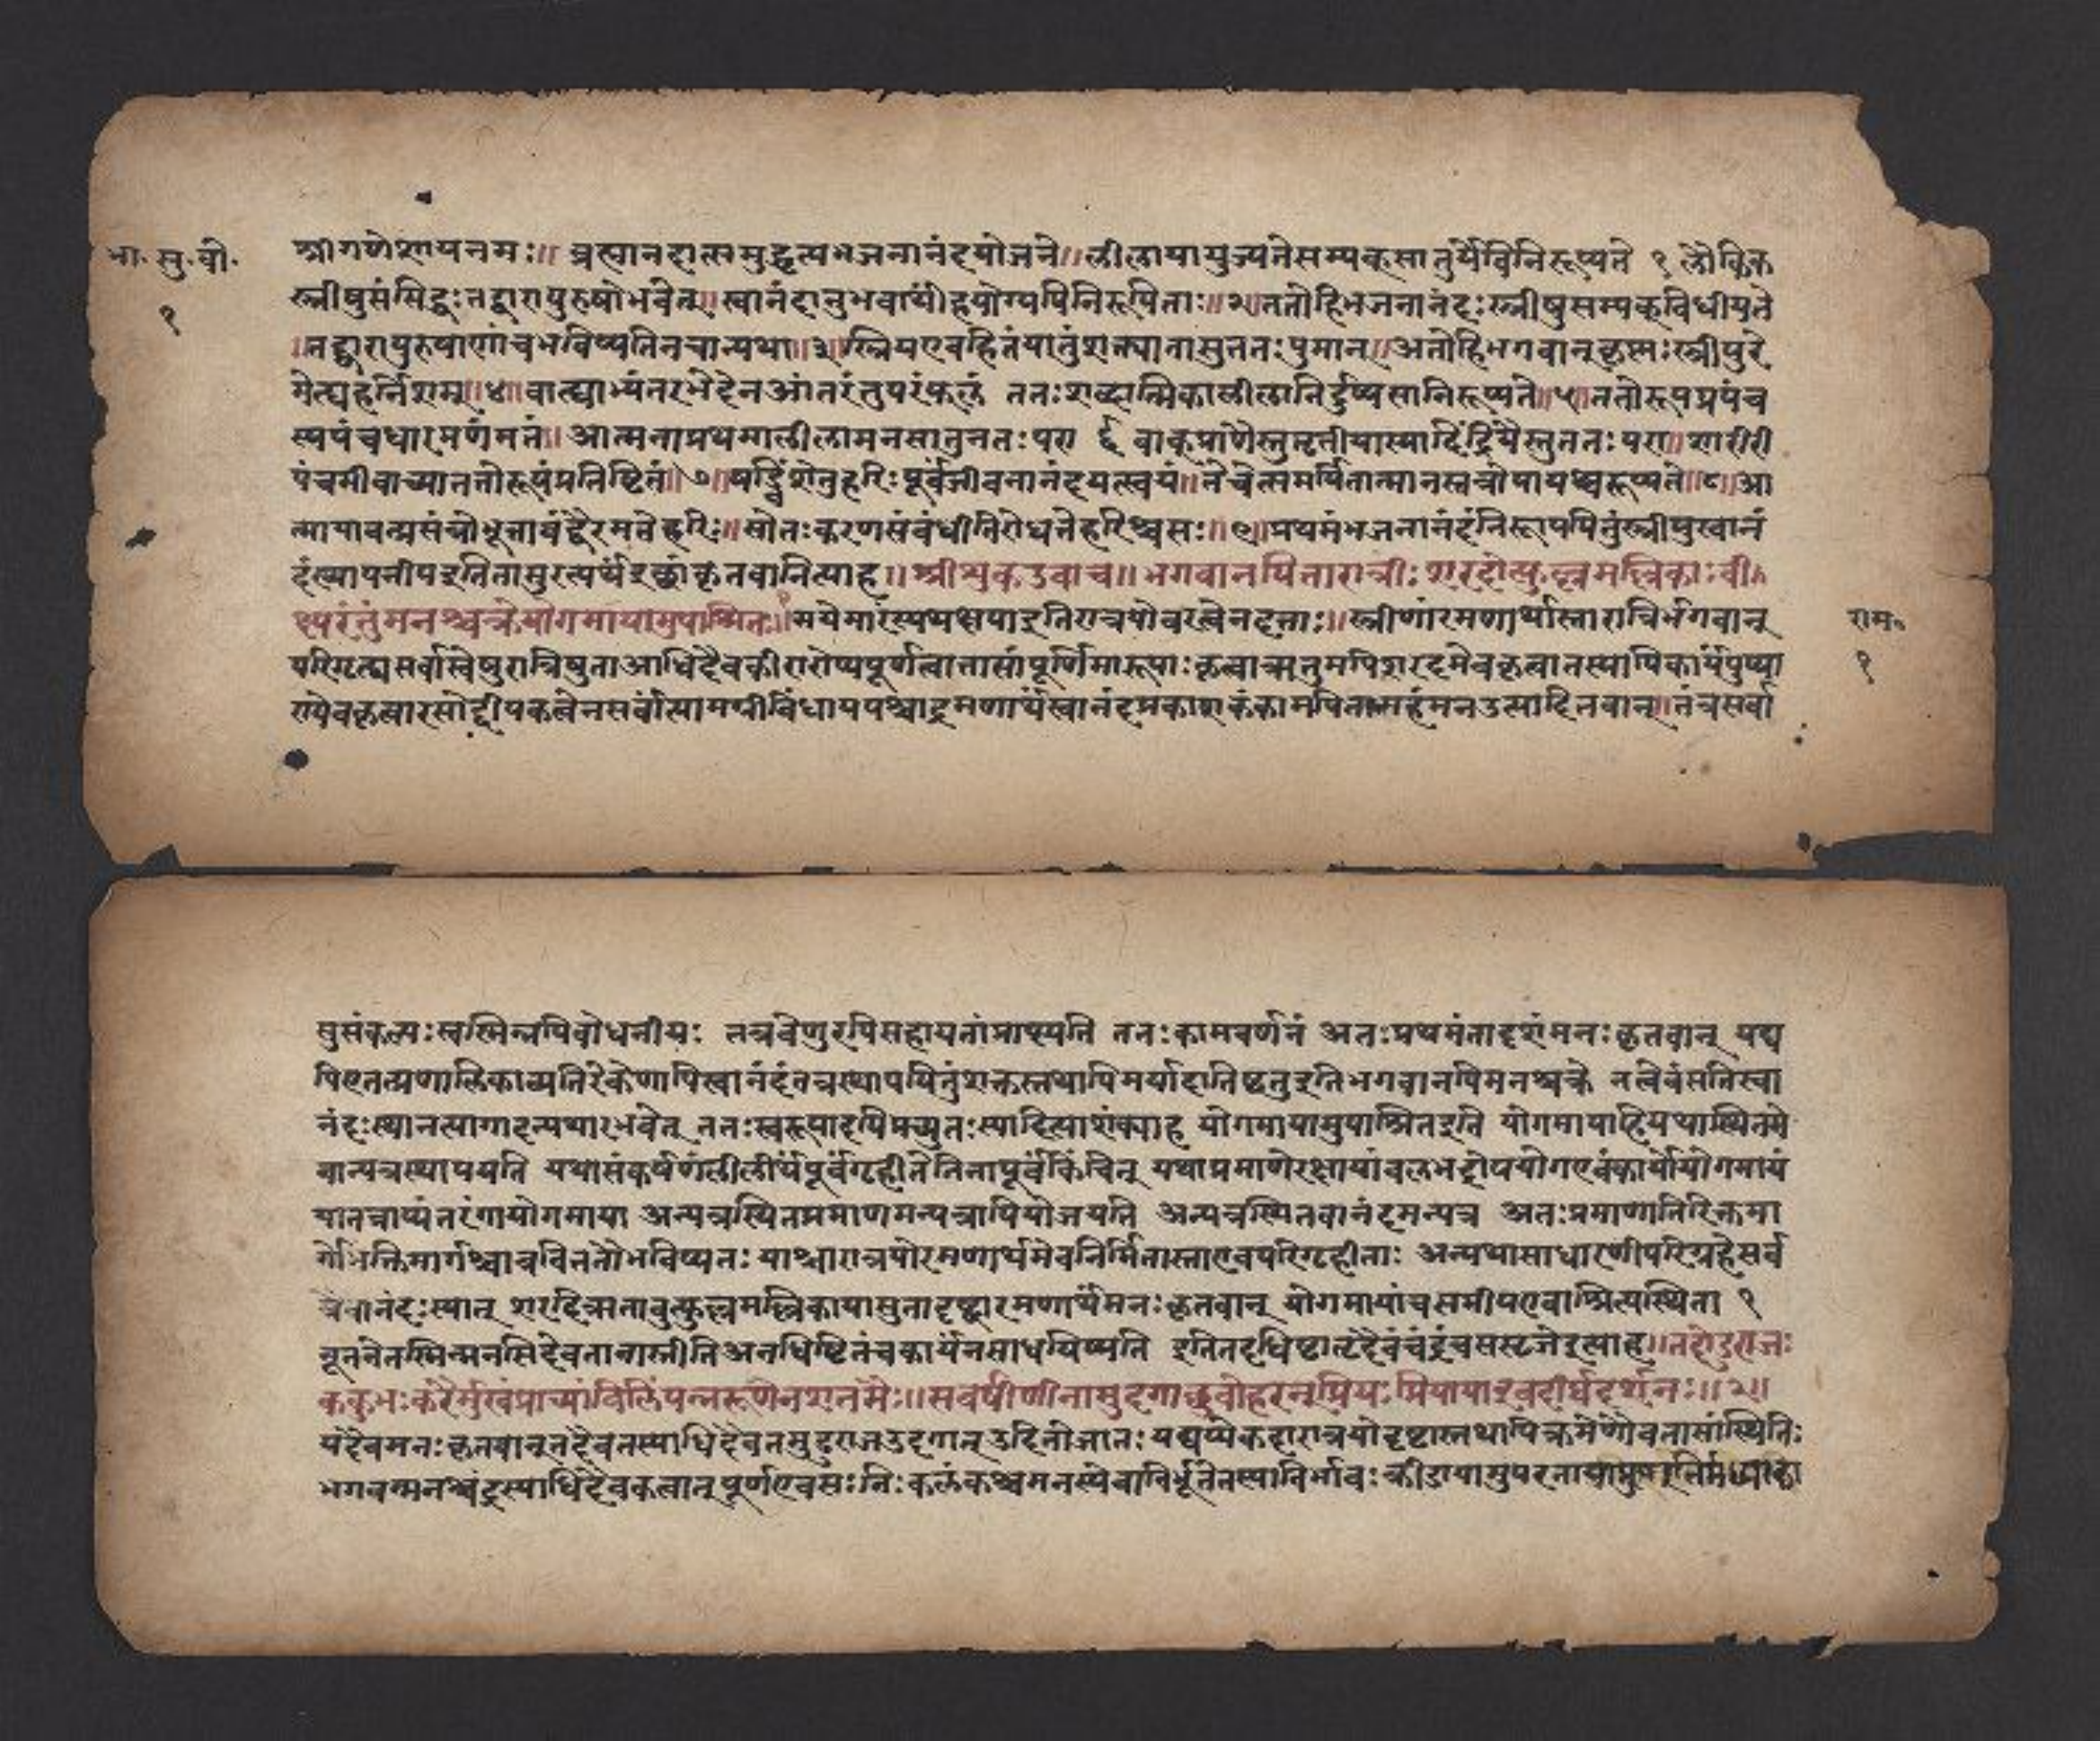 भा. सु. बी.
१
श्रीगणेशायनमः॥ ब्रह्मानंदात्समुद्धृत्यभजनानंदयोजने॥लीलायायुज्यतेसम्यक्सातुर्येविनिरूप्यते १ लौकिक
स्त्रीषुसंसिद्धःतद्द्वारापुरुषोभवेत्॥स्वानंदानुभवार्थीहयोग्यपिनिरूपिताः॥२॥ततोहिभजनानंदःस्त्रीषुसम्यक्विधीयते
।तद्द्वारापुरुषाणांचभविष्यतिनचान्यथा॥३॥स्त्रियएवहितंपातुंशक्त्यातासुततःपुमान्॥अतोहिभगवान्कृष्णःस्त्रीषुरे
मेत्यहर्निशम्॥४॥बाह्याभ्यंतरभेदेनआंतरंतुपरंफलं ततःशब्दात्मिकालीलानिर्दुष्पसानिरूप्यते॥५॥ततोरूपप्रपंच
स्यपंचधारमणंमतं॥आत्मनाप्रथमालीलामनसातुततःपरा ६ वाक्प्राणैस्तुतृतीयास्यादिंद्रियैस्तुततःपरा॥शारीरी
पंचमीवाच्याततोरूपंप्रतिष्टितं॥७॥षड्विंशेतुहरिःपूर्वंजीवनानंदयत्स्वयं॥तेचेत्समर्पितात्मानस्तत्रोपायश्चरूप्यते॥८॥आ
त्मायावत्प्रसंन्नोभूत्तावद्वैरमतेहरिः॥सोंतःकरणसंबंधीतिरोधत्तेहरिश्चसः॥९॥प्रथमंभजनानंदंनिरूपपितुंस्त्रीषुस्वानं
दंस्थापनीयइतितासुरत्यर्थइच्छांकृतवानित्याह॥श्रीशुकउवाच॥भगवानपितारात्रीःशरदोत्फुल्लमल्लिकाःवी
क्ष्यरंतुंमनश्चक्रेयोगमायामुपाश्रितः॥१॥मयेमारंस्यथक्षपाइतिरात्रयोवरत्वेनदत्ताः॥स्त्रीणांरमणार्थास्तारात्रिर्भगवान्
परिगृह्यसर्वास्वेषुरात्रिषुताआधिदैवकीरारोप्यपूर्णत्वात्तासांपूर्णिमारूपाःकृत्वाऋतुमपिशरदमेवकृत्वातस्यापिकार्यंपुष्पा
ण्येवकृत्वारसोद्दीपकत्वेनसर्वांसामग्रींविधायपश्चाद्रमणार्थंस्वानंदप्रकाशकंकामपितामहंमनउत्पादितवान्॥तंत्रसर्वा
राम॰
१
सुसंकल्पःस्वस्मिन्नपिबोधनीयः तत्रवेणुरपिसहायतांप्राप्स्यति ततःकामवर्णनं अतःप्रथमंतादृशंमनःकृतवान् यद्य
पिएतत्प्रणालिकाव्यतिरेकेणापिस्वानंदंतत्रस्थापयितुंशक्तस्तथापिमर्यादातिष्ठतुइतिभगवानपिमनश्चक्रे नत्वेवंसतिस्वा
नंदःस्थानत्यागादन्यथारभवेत् ततःस्वरूपादपिप्रच्युतःस्यादित्याशंक्याह योगमायामुपाश्रितइति योगमायाहियथास्थितमे
वान्यत्रस्थापयति यथासंकर्षणंलीलार्थंपूर्वंगृहीतेतिनापूर्वंकिंचित् यथाप्रमाणेरक्षायांबलभद्रोपयोगएवंकार्योयोगमायं
यातत्राप्यंतरंगायोगमाया अन्यत्रस्थितप्रमाणमन्यत्रापियोजयति अन्यत्रस्थितवानंदमन्यत्र अतःप्रमाणातिरिक्तमा
र्गोभक्तिमार्गश्चाचवितततोभविष्यतः याश्चारात्रयोरमणार्थमेवनिर्मितास्ताएवपरिगृहीताः अन्यथासाधारणीपरिग्रहेसर्व
त्रैवानंदःस्यात् शरदिऋतावुत्फुल्लमल्लिकायासुतादृष्ट्वारमणार्थंमनःकृतवान् योगमायांचसमीपएवाश्रित्यस्थिता १
नूतनेतस्मिन्मनसिदेवतानास्तीतिअनधिष्टितंचकार्यंनसाधयिष्यति इतितदधिष्टातृदैवंचंद्रंचससृजेइत्याह॥तदोडुराजः
ककुभःकरैर्मुखंप्राच्यांविलिंपन्नरूणेनशंतमैः॥सचर्षणीनामुदगाच्छुचोहरन्प्रियःप्रियायाइवदीर्घदर्शनः॥२॥
यदैवमनःकृतवान्तदैवतस्याधिदैवतमुडुराजउदगात् उदितोजातः यद्यप्येकदारात्रयोदृष्टास्तथापिक्रमेणैवतासांस्थितिः
भगवन्मनश्चंद्रस्याधिदैवकत्वात्पूर्णएवसःनिःकलंकश्चमनस्येवाविर्भूतेतस्याविर्भावः क्रीडायामुपरतायां